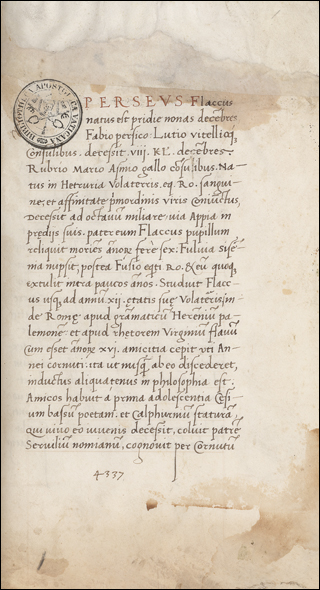 BIBLIOTECA APOSTOLICA VATICANA
PERSEVS Flaccus
natus est pridie nonas decēbres
Fabio persico Lutio vitellioq;
consulibus. decessit. viii. KL. decēbres.
Rubrio Mario Asinio gallo cōsulibus. Na-
tus in Hetruria Volaterris. eq. Ro. sangui-
ne; et affinitate p̄mordinis viris coniūctus,
Decessit ad octauū miliare via Appia in
prędijs suis. patrem Flaccus pupillum
reliquit morīēs ānorę ferè sex. Fuluia Sise-
nia nupsit; postea Fusio eqti Ro. & eū quoq;
extulit intra paucos ānos. Studuit Flac-
cus usq; ad annū xii. etatis suę Volateris. in-
de Romę apud grāmaticū Heremiū pa-
lemonē et apud rhetorem Virginiū flauū
cum esset ānorę xvj. amicitia cepit uti An-
nei cornuti. ita ut nusq̄ ab eo discederet,
inductus aliquatenus in philosophia est.
Amicos habuit a prima adolescentia Cesi-
um bassū poetam. et Calphurniū staturā.
Qui viuo eo iuuenis decessit. coluit patrē
Seruiliū nonianū, cognouit per Cornutū
4337